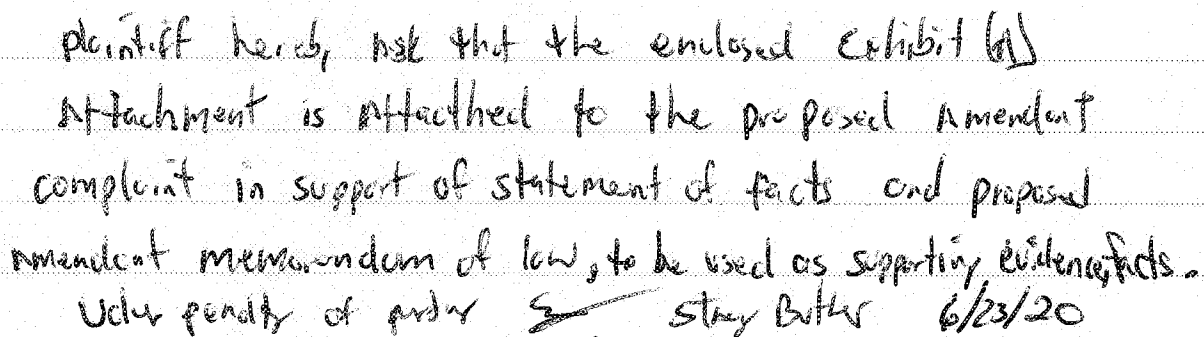 plaintiff hereb, Ask that the enclosed Exhibit (A)
Attachment is Attacthed to the proposed Amendant
complaint in support of statement of facts and proposed
Amendant memorandum of law, to be used as supporting evidence, facts.
Under penalty of perjury Butler 6/23/20